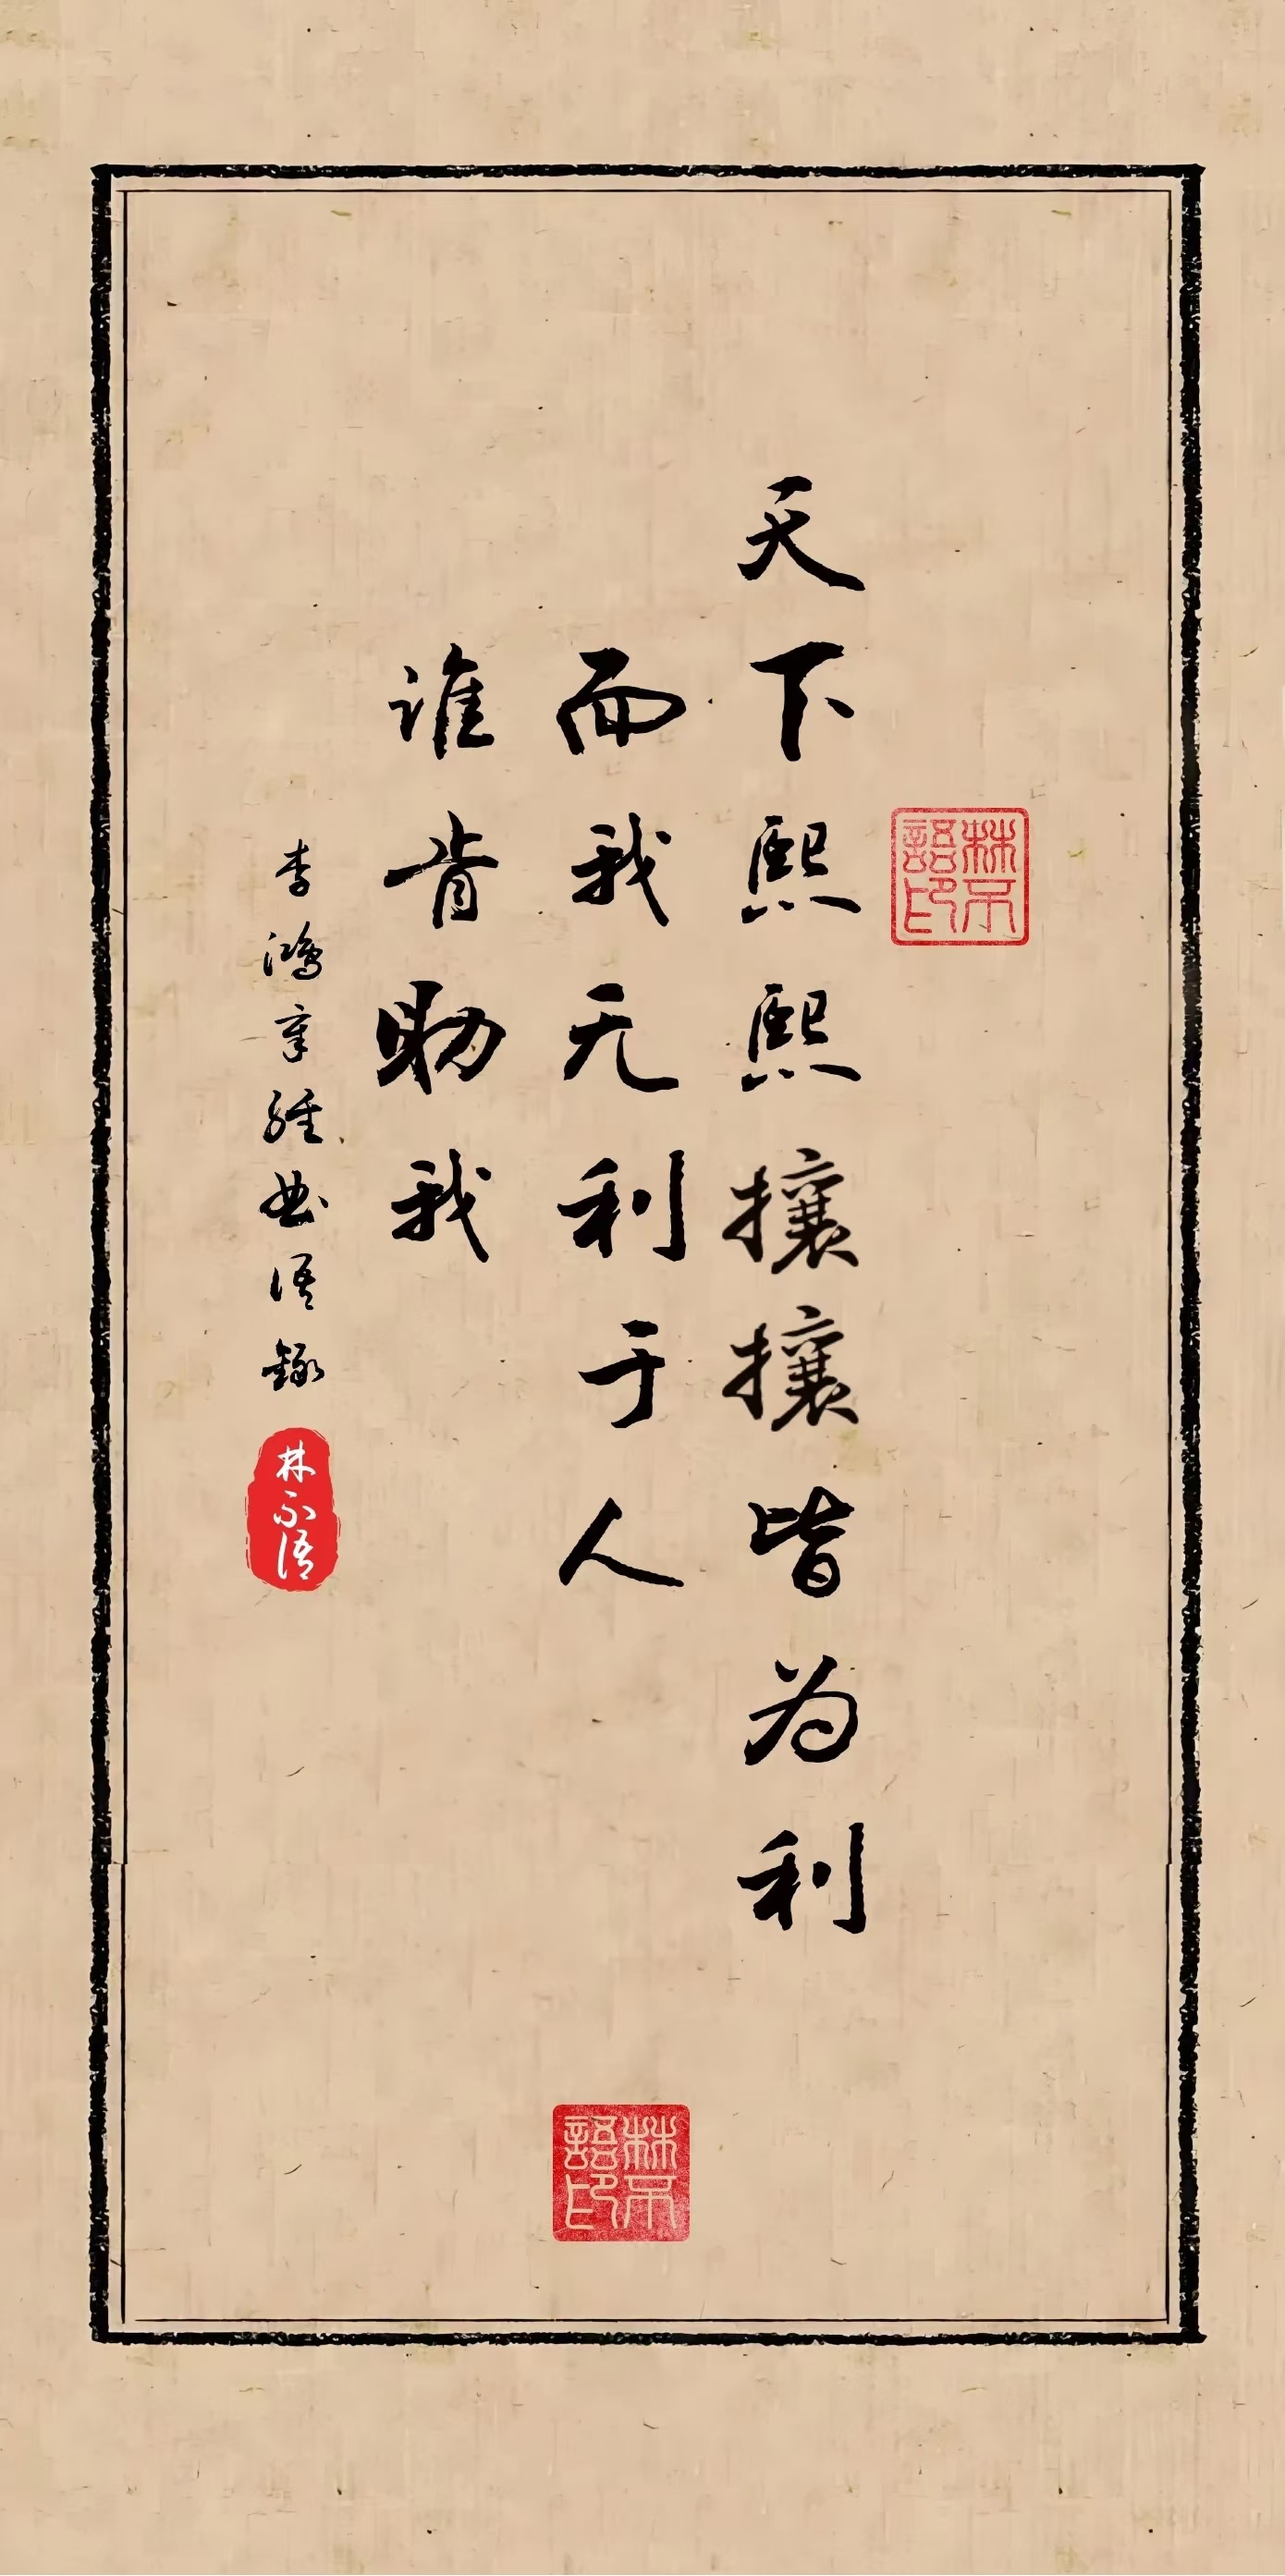 天下熙熙攘攘皆为利
而我无利于人
谁肯助我
李鸿章经典语录
林不语
林不語印
林不語印